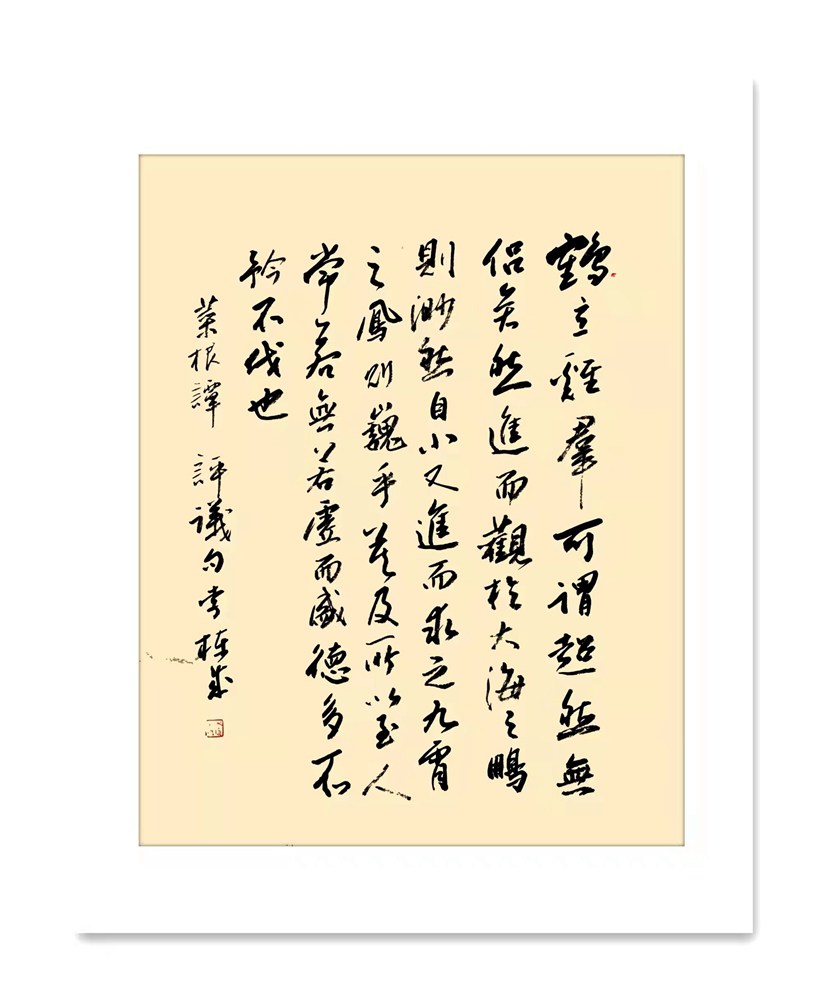 鶴立雞羣可謂超然無
侶矣然進而觀於大海之鵬
則渺然自小又進而求之九霄
之鳳則巍乎莫及所以至人
常若無若虛而盛德多不
矜不伐也
菜根譚 評議句 李